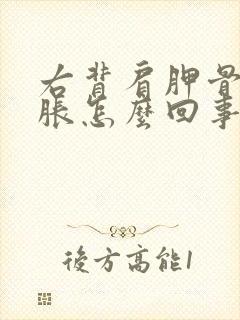 右背肩胛骨
脹怎麼回事
後方高能1